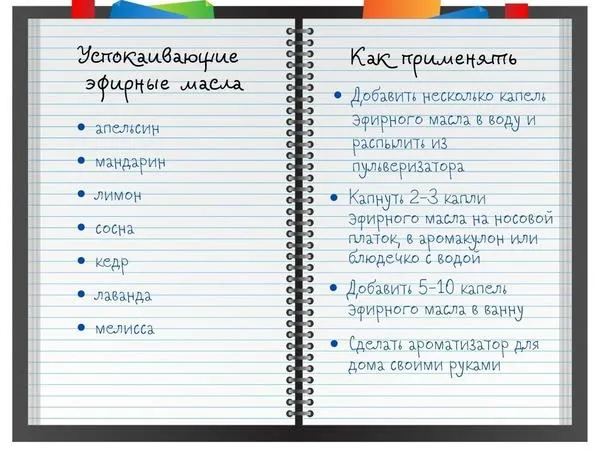 Успокаивающие
эфирные масла
• апельсин
• мандарин
• лимон
• сосна
• кедр
• лаванда
• мелисса
Как применять
• Добавить несколько капель
эфирного масла в воду и
распылить из
пульверизатора
• Капнуть 2-3 капли
эфирного масла на носовой
платок, в аромакулон или
блюдечко с водой
• Добавить 5-10 капель
эфирного масла в ванну
• Сделать ароматизатор для
дома своими руками